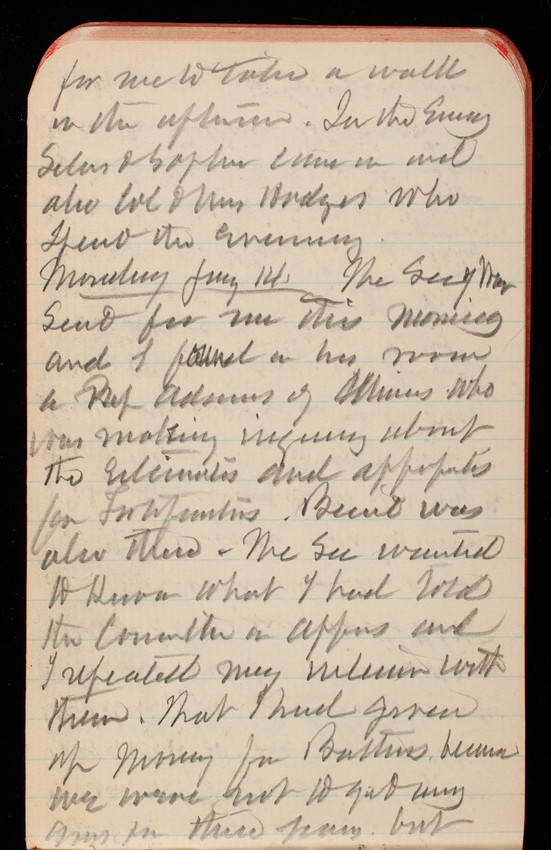 for me to take a walk
in the afternoon. In the Eveng
Silas & Sophie came in and
also Col & Mrs Hodges who
spend the Evening.
Monday Jany 14. The Secy War
Send for me this Morning
and I found in his room
a Rep Adams of Illinois who
was making inquiry about
the Estimates and appropriats
for Fortifications. Benet was
also there - The Sec wanted
to know what I had told
the Committee on Appns and
I repeated my interview with
them. That I had given
up Money for Batteries because
we were not to get any
Guns for three years. but